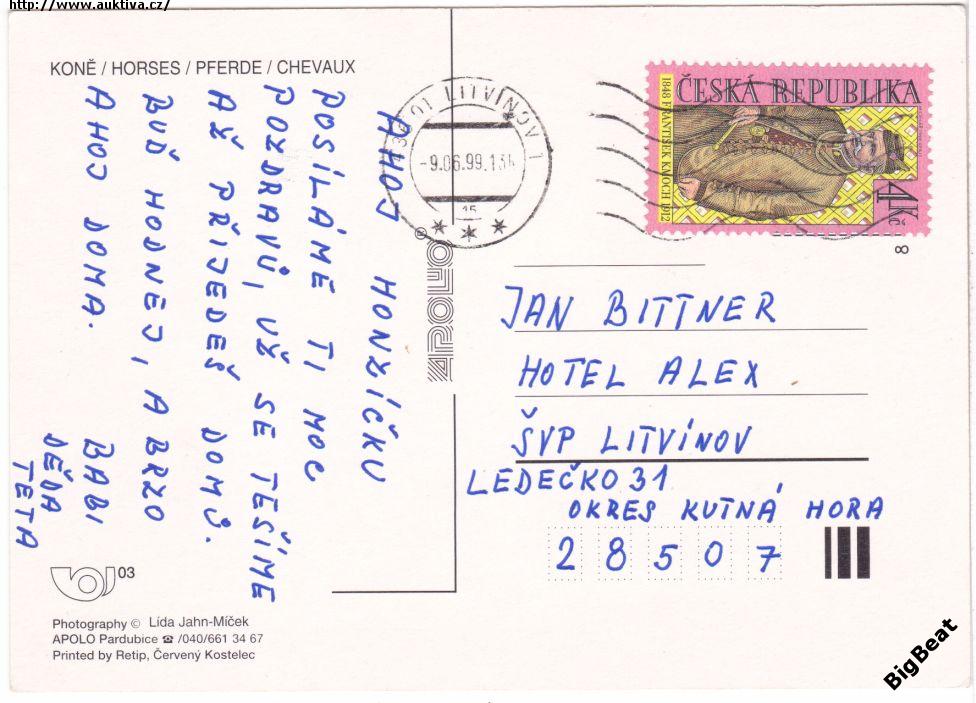 http://www.auktiva.cz/
KONĚ / HORSES / PFERDE / CHEVAUX
AHOJ HONZÍČKU
POSÍLÁME TI MOC
POZDRAVŮ, UŽ SE TEŠÍME
AŽ PŘIJEDEŠ DOMŮ.
BUĎ HODNEJ, A BRZO
AHOJ DOMA.
BABI
DĚDA
TETA
LITVÍNOV 1
-9.06.99.13
15
APOLO®
ČESKÁ REPUBLIKA
1848 FRANTIŠEK KMOCH 1912
4Kč
8
JAN BITTNER
HOTEL ALEX
ŠVP LITVÍNOV
LEDEČKO 31
OKRES KUTNÁ HORA
28507
03
Photography © Lída Jahn-Míček
APOLO Pardubice ☎ /040/661 34 67
Printed by Retip, Červený Kostelec
BigBeat